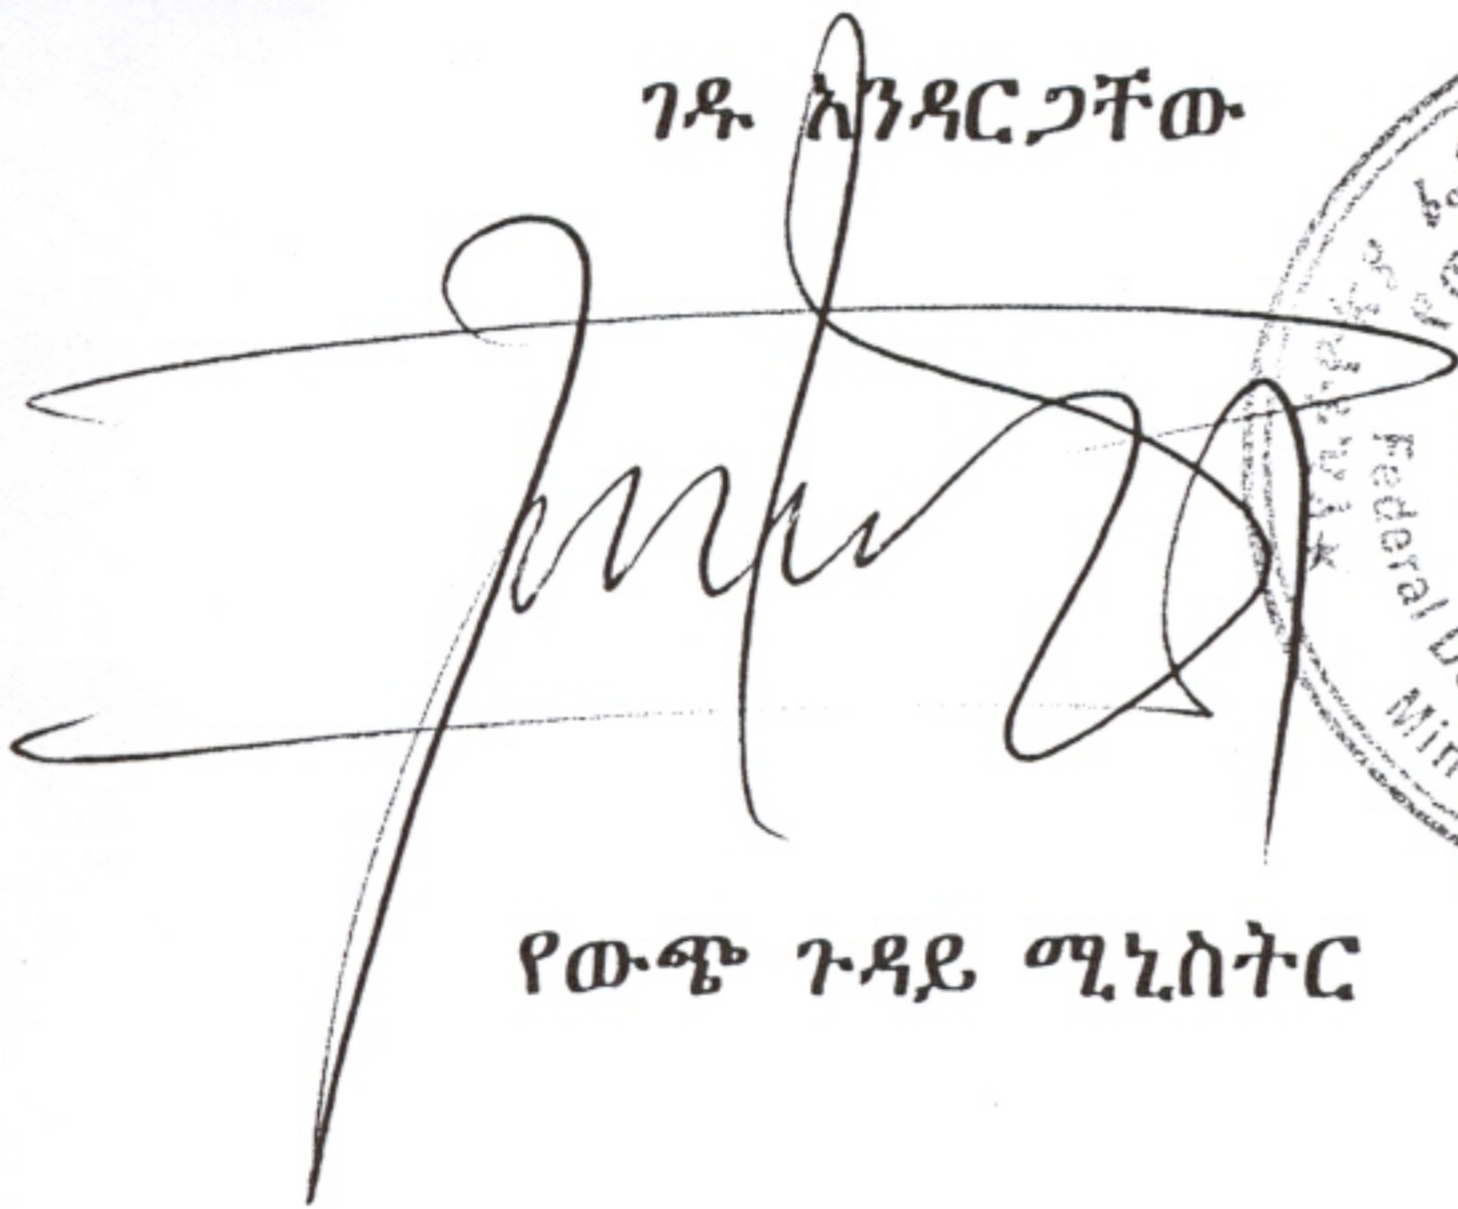 ገዱ አንዳርጋቸው
Federal
የውጭ ጉዳይ ሚኒስትር